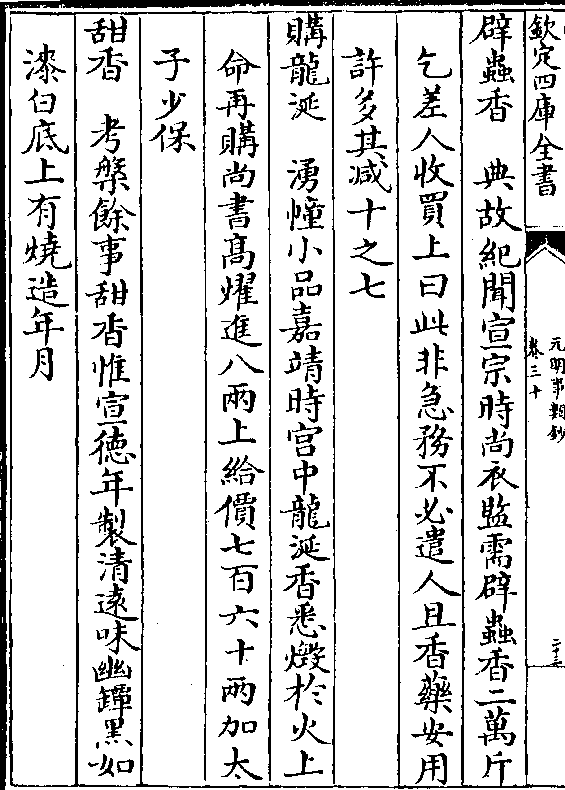 欽定四庫全書
元明事類鈔
卷三十
二十三
辟蟲香　典故紀聞宣宗時尚衣監需辟蟲香二萬斤
乞差人收買上曰此非急務不必遣人且香藥安用
許多其减十之七
購龍涎　湧幢小品嘉靖時宫中龍涎香悉燬於火上
命再購尚書髙燿進八兩上給價七百六十兩加太
子少保
甜香　考槃餘事甜香惟宣徳年製清遠味幽罈黒如
漆白底上有燒造年月